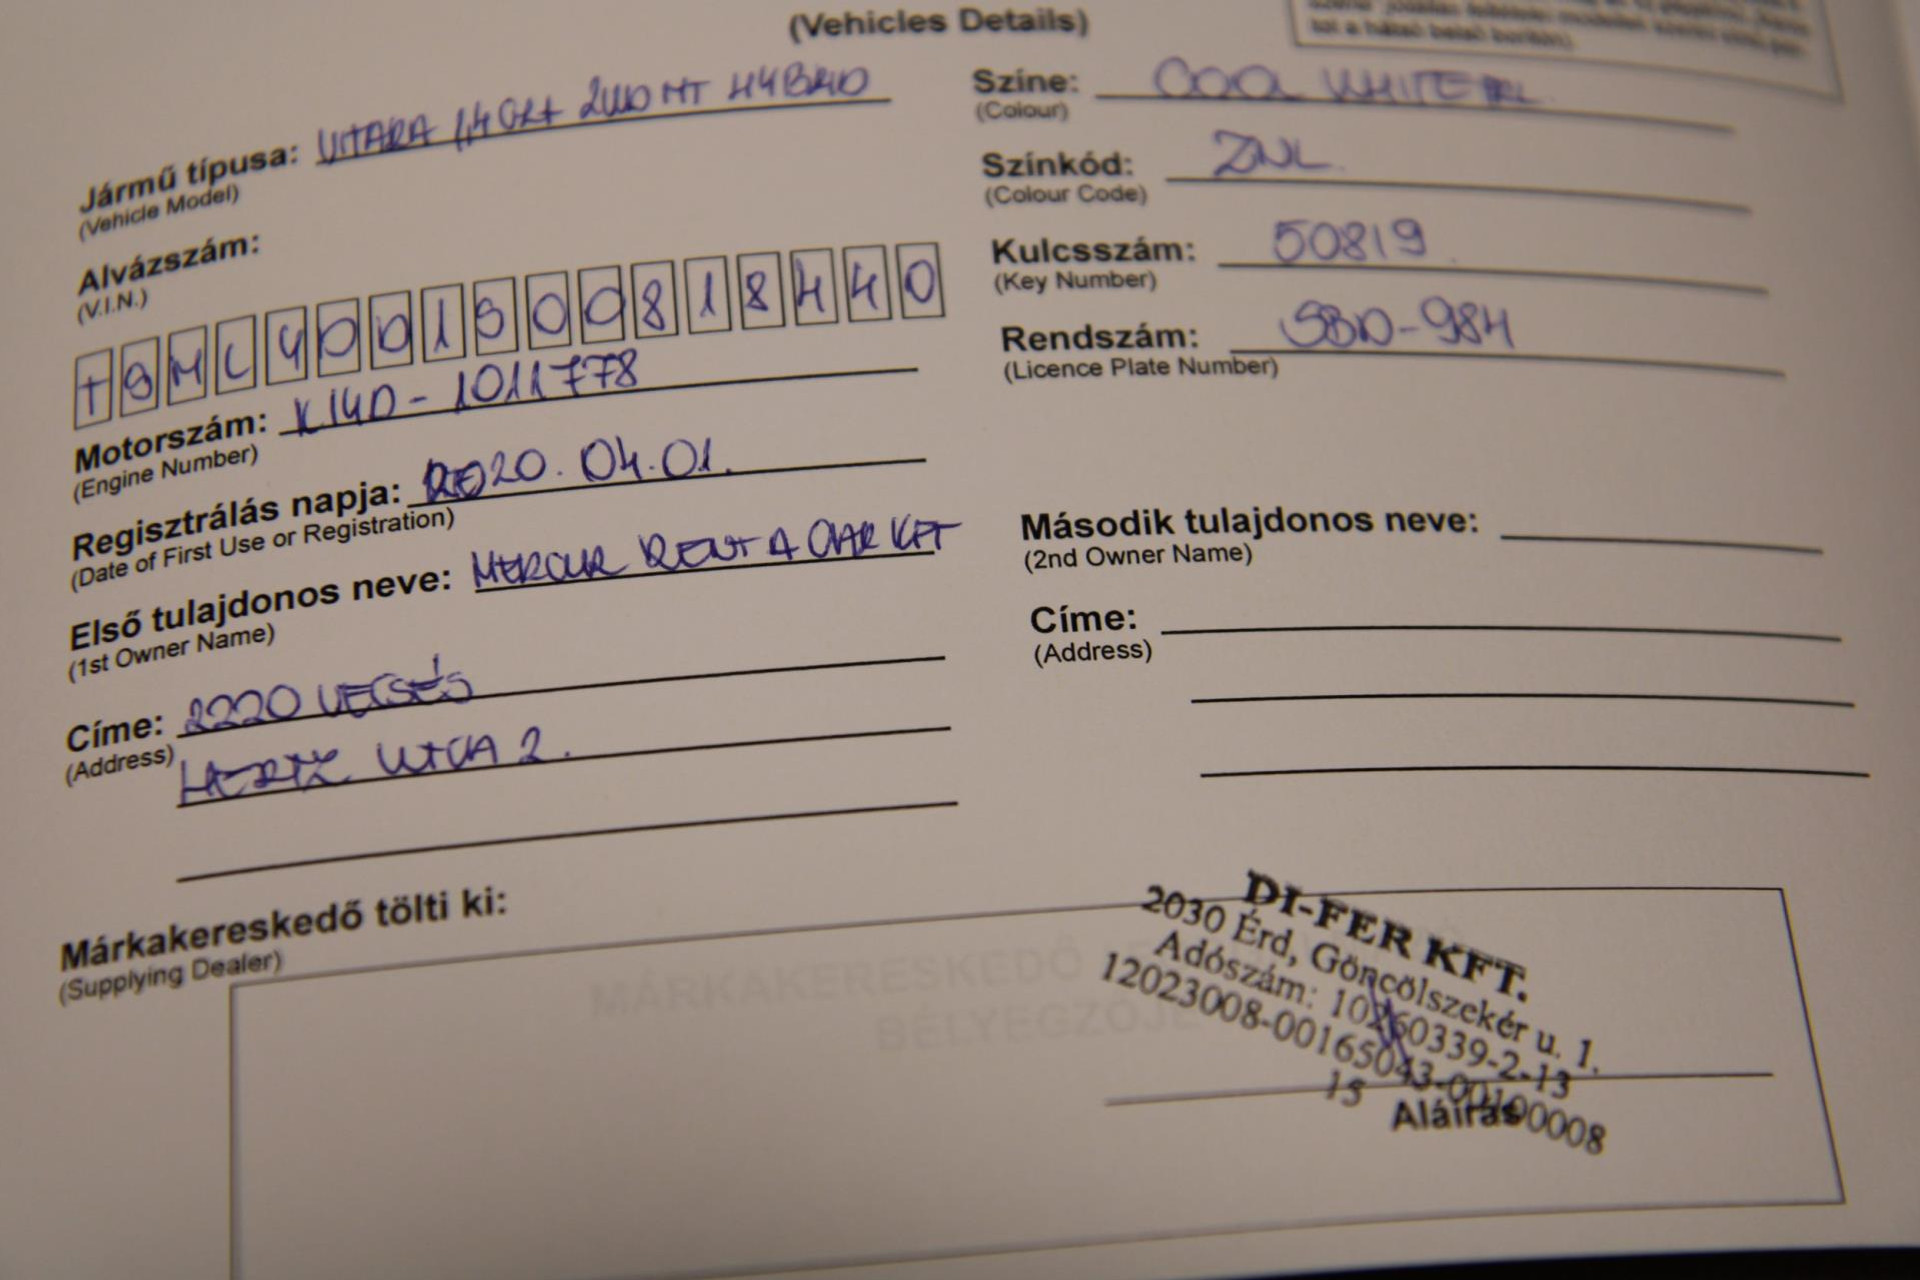 (Vehicles Details)
Jármű típusa: VITARA 1,4 GL+ 2WD MT HYBRID
(Vehicle Model)
Alvázszám:
(V.I.N.)
TSMLYDD1S00818440
Motorszám: K14D-1011778
(Engine Number)
Regisztrálás napja: 2020.04.01.
(Date of First Use or Registration)
Első tulajdonos neve: MERCUR RENT A CAR KFT
(1st Owner Name)
Címe: 2220 VECSÉS
(Address) HERTZ UTCA 2.
Színe: COOL WHITE
(Colour)
Színkód: ZNL
(Colour Code)
Kulcsszám: 50819
(Key Number)
Rendszám: SBD-984
(Licence Plate Number)
Második tulajdonos neve:
(2nd Owner Name)
Címe:
(Address)
Márkakereskedő tölti ki:
(Supplying Dealer)
MÁRKAKERESKEDŐ
BÉLYEGZŐJE
DI-FER KFT.
2030 Érd, Göncölszekér u. 1.
Adószám: 10260339-2-13
12023008-00165043-00100008
15
Aláírás